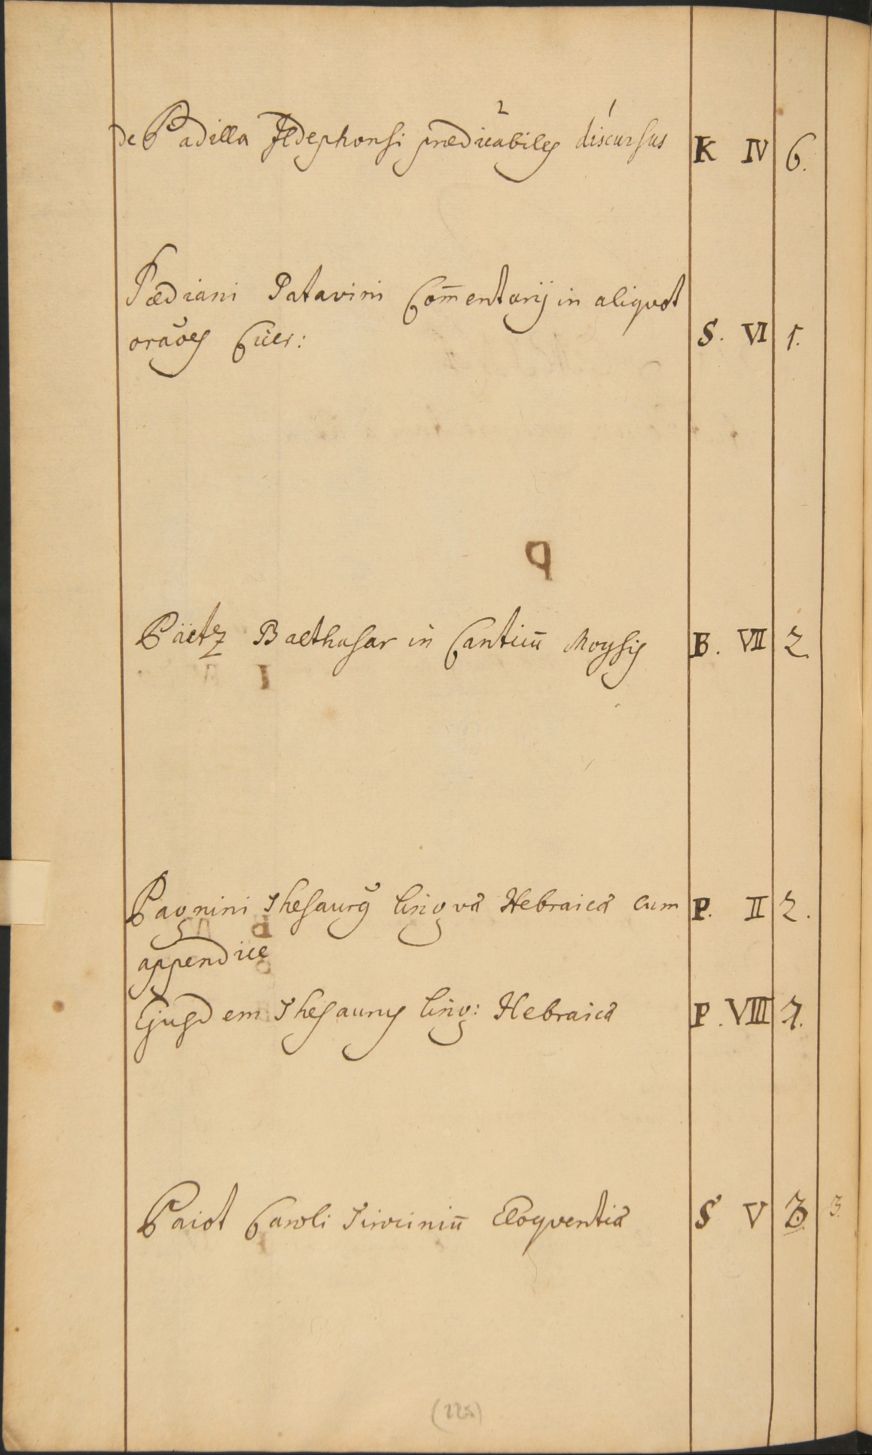 2 1
de Padilla Ildephonsi prædicabiles discursus K IV 6.
Pædiani Patavini Com̄entarij in aliqvot
orāoes Cicer: S. VI 1.
Päetz Balthasar in Canticū Moysis B. VII 2
Pagnini Thesaurus lingvæ Hebraicæ cum P. II 2.
appendice
Ejusdem Thesaurus ling: Hebraicæ P. VIII
Paiot Caroli Tirociniū Eloqventiæ S V 3 3.